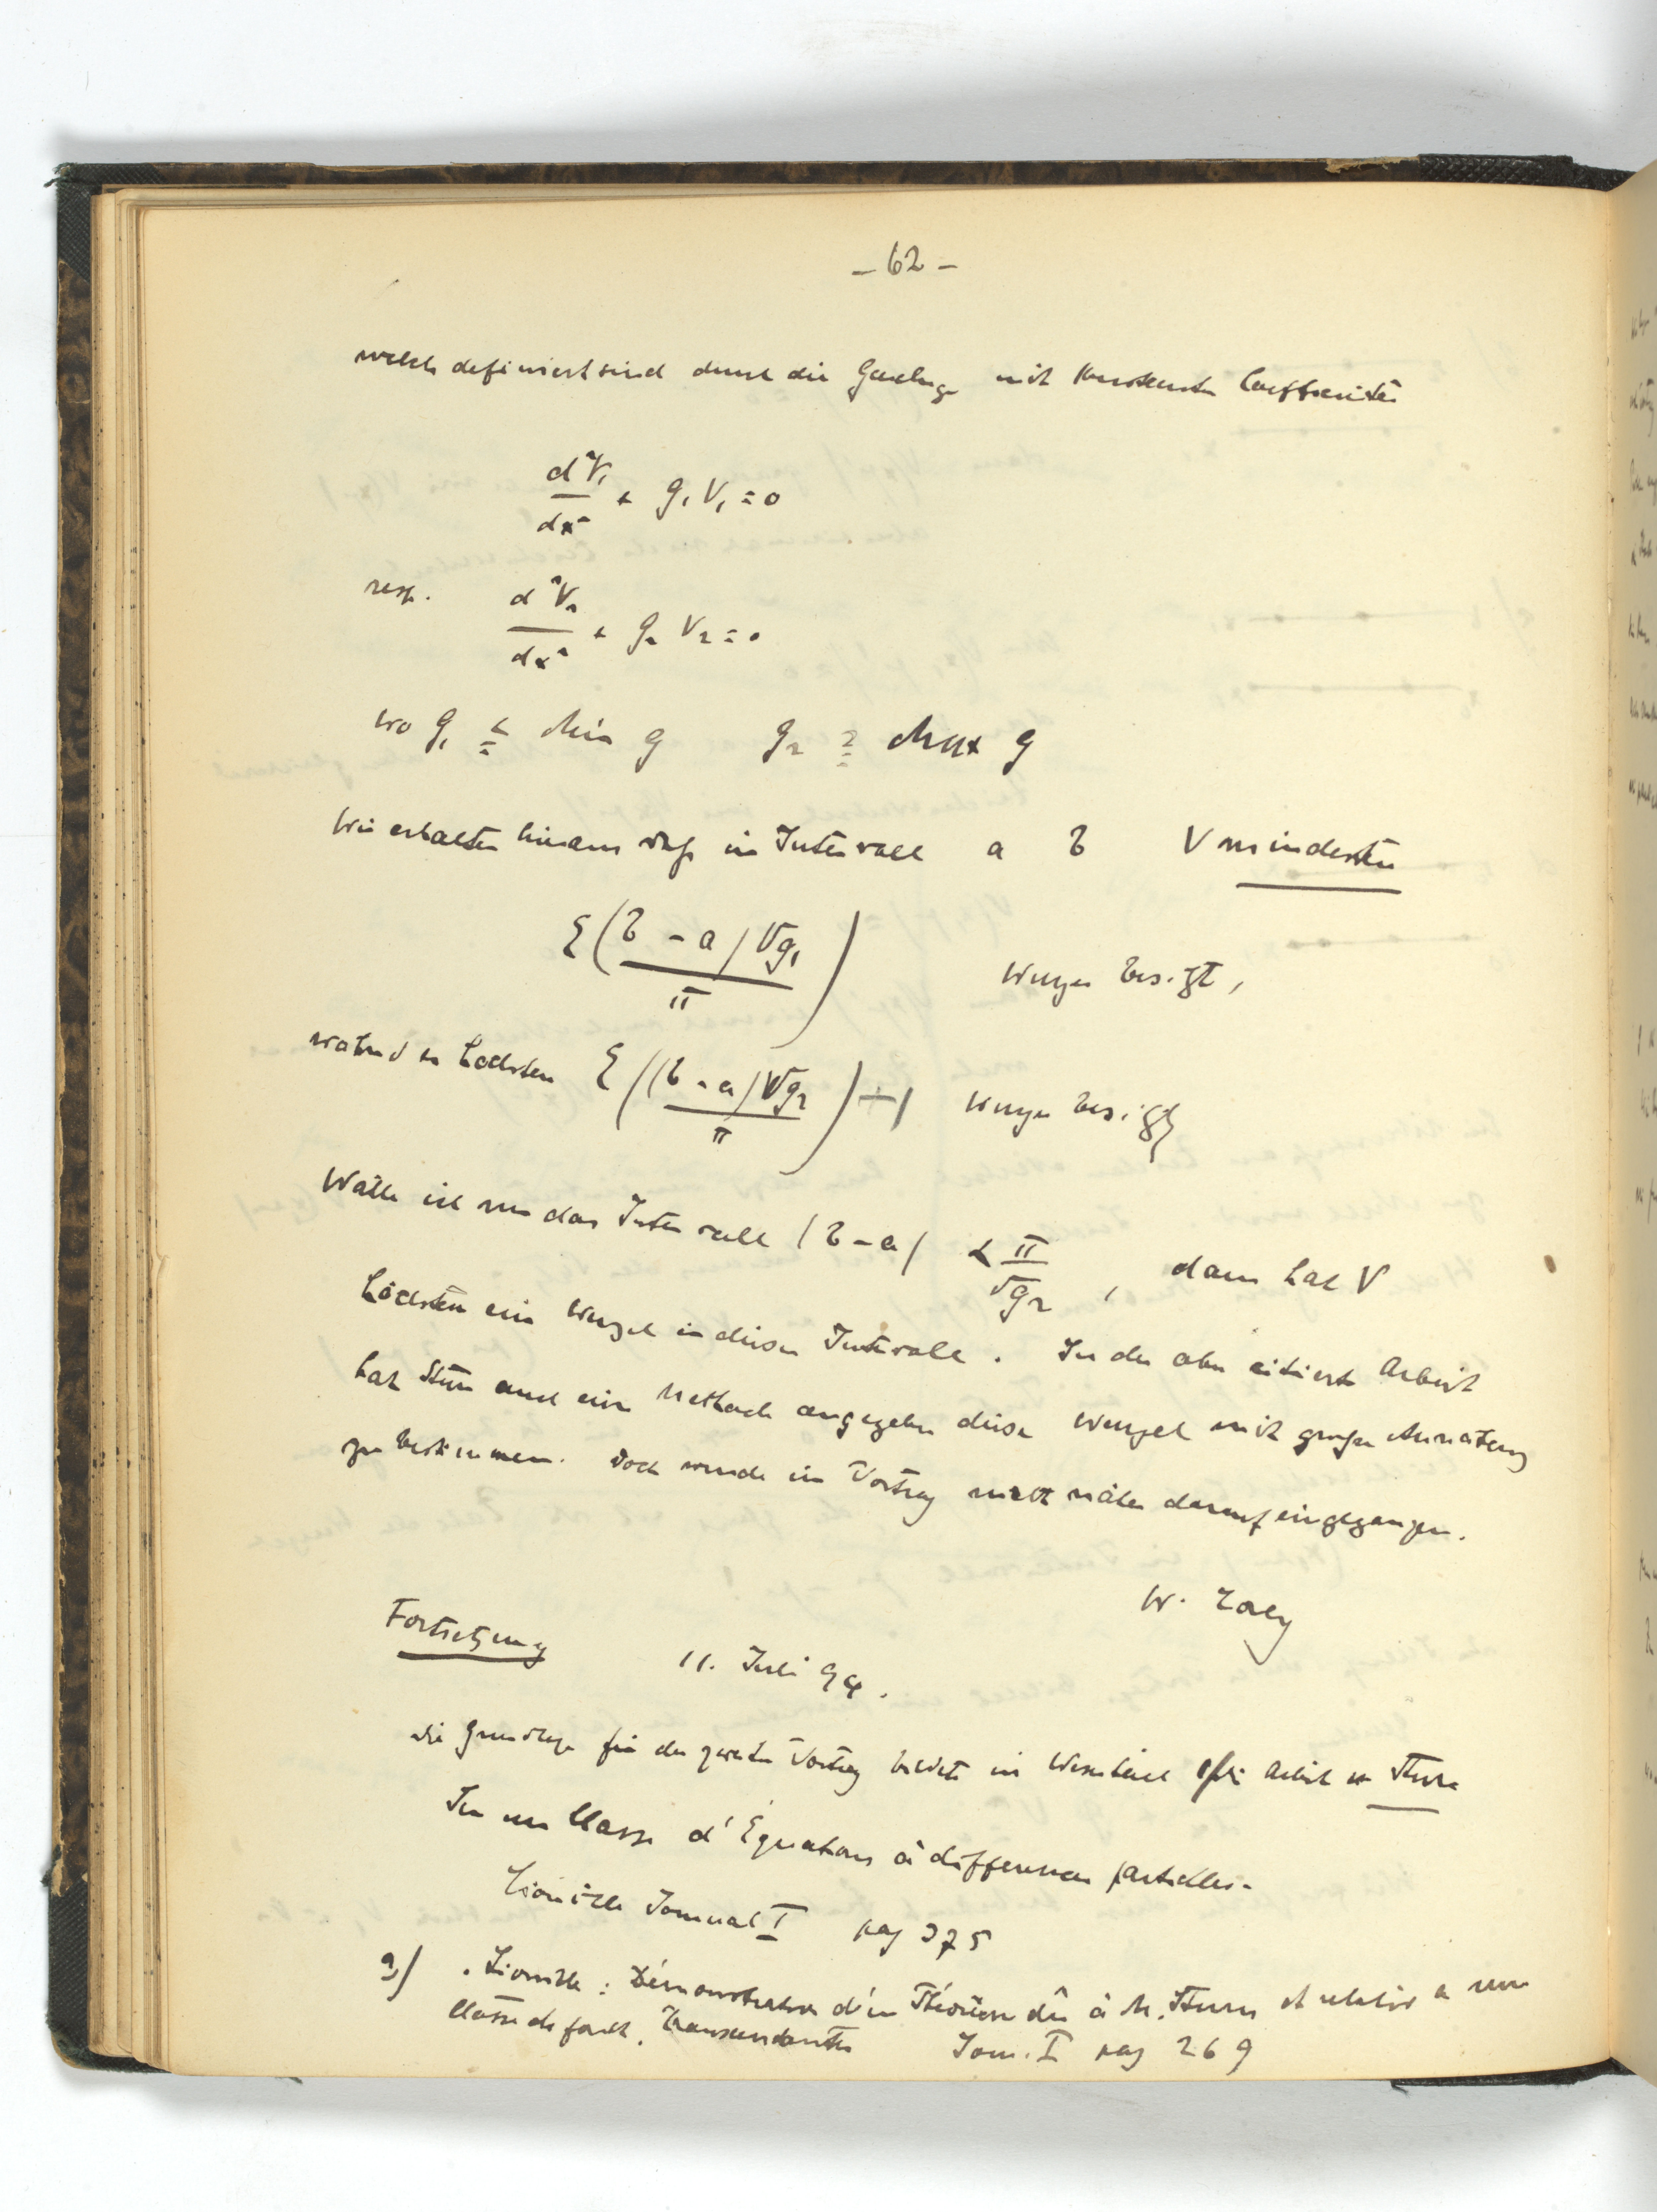 - 62 -
welche definiert sind durch die Gleichunge mit konstanten Coefficienten
d²V₁/dx² + g₁ V₁ = 0
resp. d²V₂/dx² + g₂ V₂ = 0
wo g₁ ≤ Min g g₂ ≥ Max g
Wir erhalten hieraus daß im Intervall a b V mindestens
E((b - a) √g₁ / π) Wurzeln besitzt,
während es höchstens E((b - a) √g₂ / π) + 1 Wurzeln besitzt
Wähle ich nun das Intervall (b - a) < π/√g₂, dann hat V
höchstens eine Wurzel in diesem Intervalle. In der oben citierten Arbeit
hat Sturm auch eine Methode angegeben diese Wurzel mit großer Annäherung
zu bestimmen. Doch wurde im Vortrag nicht näher darauf eingegangen.
W.
Fortsetzung 11. Juli 94.
Die Grundlage für den zweiten Vortrag bildete im Wesentlichen die Arbeit v. Sturm
Sur une Classe d'Équations à différences partielles.
Liouville Journal I pag 375
2) Liouville: Démonstration d'un Théorème dû à M. Sturm et relatif a une
classe de fonct. transcendantes Jour. I pag 269